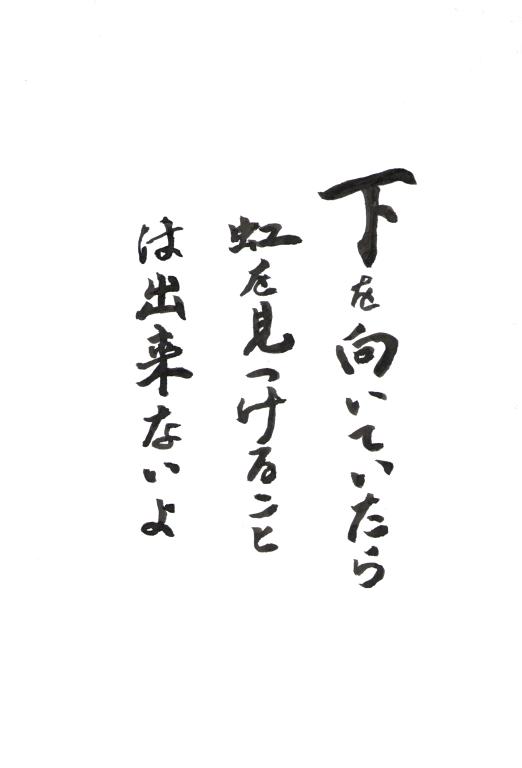 下を向いていたら
虹を見つけること
は出来ないよ